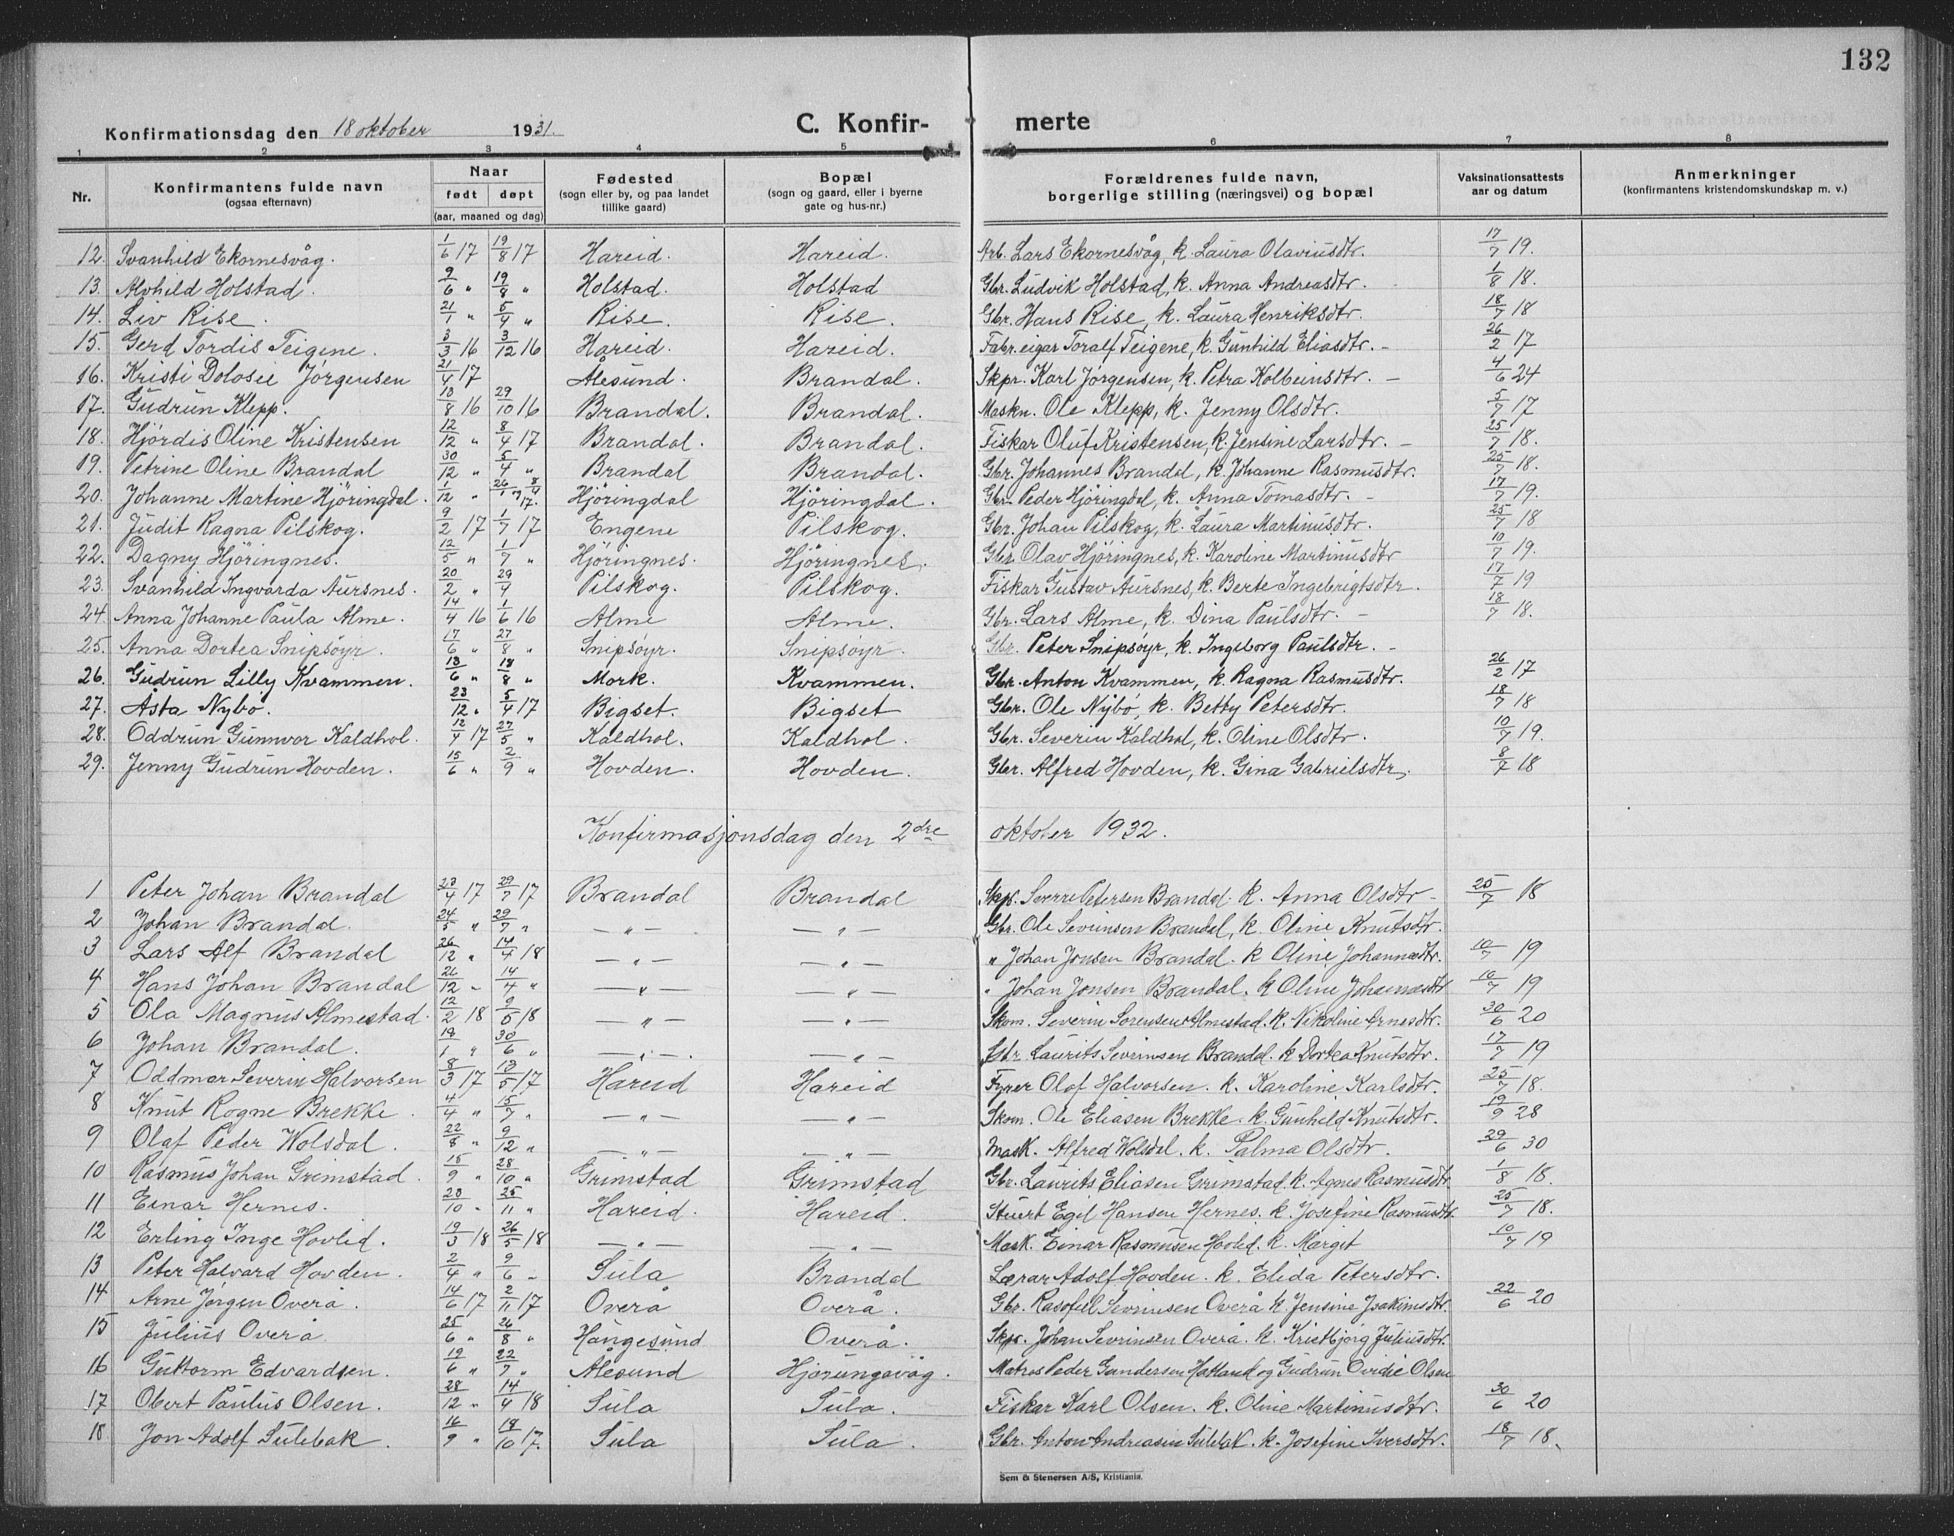 132
Konfirmationsdag den 18 oktober 1931. C. Konfir- merte
1 2 3 4 5 6 7 8
Nr. Konfirmantens fulde navn (ogsaa efternavn) Naar født døpt (aar, maaned og dag) Fødested (sogn eller by, og paa landet tillike gaard) Bopæl (sogn og gaard, eller i byerne gate og hus-nr.) Forældrenes fulde navn, borgerlige stilling (næringsvei) og bopæl Vaksinationsattests aar og datum Anmerkninger (konfirmantens kristendomskundskap m. v.)
12. Svanhild Ekornesvåg. 1/6 17 19/8 17 Hareid. Hareid. Arb. Lars Ekornesvåg, k. Laura Olaviusdtr. 17/7 19.
13. Alvhild Holstad. 9/6 " 19/8 " Holstad. Holstad Gbr. Ludvik Holstad, k. Anna Andreasdtr. 1/8 18.
14. Liv Rise. 21/1 " 5/4 " Rise. Rise. Gbr. Hans Rise, k. Laura Henriksdtr. 18/7 18
15. Gerd Tordis Teigene. 3/3 16 3/12 16 Hareid. Hareid. Fabr.eigar Toralf Teigene, k. Gunhild Eliasdtr. - 26/2 17
16. Kristi Dolosee Jørgensen 21/4 17 Ålesund. Brandal. Skpr. Karl Jørgensen, k. Petra Kolbeinsdtr. - 4/6 24
17. Gudrun Klepp. 10/8 16 29/10 16 Brandal. Brandal. Maskn. Ole Klepp, k. Jenny Olsdtr. 5/7 17
18. Hjördis Oline Kristensen 12/12 " 8/4 17 Brandal. Brandal. Fiskar Oluf Kristensen, k. Jensine Larsdtr. - 25/7 18.
19. Petrine Oline Brandal 30/12 " 5/4 " Brandal Brandal. Gbr. Johannes Brandal, k. Johanne Rasmusdtr. 25/7 18.
20. Johanne Martine Hjöringdal. 1/12 " 26/1 " 8/4 17. Hjöringdal Hjöringdal. Gbr. Peder Hjöringdal, k. Anna Tomasdtr. - 17/7 19.
21. Judit Ragna Pilskog. 9/2 17 1/7 17 Engene Pilskog. Gbr. Johan Pilskog, k. Laura Martinusdtr. 25/7 18
22. Dagny Hjöringnes. 12/5 " 1/7 " Hjöringnes. Hjöringnes. Gbr. Olav Hjöringnes, k. Karoline Martinusdtr 10/7 19.
23. Svanhild Ingvarda Aursnes. 20/2 " 29/4 Pilskog. Pilskog. Fiskar Gustav Aursnes, k. Berte Ingebrigtsdtr. 17/7 19
24. Anna Johanne Paula Alme. 14/4 16 1/6 16 Alme Alme. Gbr. Lars Alme, k. Dina Paulsdtr. - 18/7 18.
25. Anna Dortea Snipsöyr. 17/6 " 27/8 " Snipsöyr. Snipsöyr. Gbr. Peter Snipsöyr, k. Ingeborg Paulsdtr. -
26. Gudrun Lilly Kvammen. 13/6 " 18/8 " Mork. Kvammen. Gbr. Anton Kvammen, k. Ragna Rasmusdtr. 26/2 17
27. Åsta Nybö. 23/12 " 5/4 17 Bigset. Bigset Gbr. Ole Nybö, k. Betty Petersdtr. 18/7 18
28. Oddrun Gunnvor Kaldhol. 12/4 17 27/5 " Kaldhol. Kaldhol. Gbr. Severin Kaldhol, k. Oline Olsdtr. 10/7 19.
29. Jenny Gudrun Hovden. 15/6 " 2/9 " Hovden. Hovden. Gbr. Alfred Hovden, k. Gina Gabrielsdtr. 8/7 18
Konfirmasjonsdag den 2dre oktober 1932.
1 Peter Johan Brandal 23/4 17 29/7 17 Brandal Brandal Skpr. Sverre Petersen Brandal. k. Anna Olsdtr - 25/7 18
2 Johan Brandal. 24/5 " 29/7 " — " — — " — Gbr. Ole Sevrinsen Brandal, k. Oline Knutsdtr.
3 Lars Alf Brandal 26/12 " 14/4 18 — " — — " — " Johan Jonsen Brandal. k Oline Johannesdtr. 10/7 19
4 Hans Johan Brandal 26/12 " 14/4 " — " — — " — " Johan Jonsen Brandal. k Oline Johannesdtr 10/7 19
5 Ola Magnus Almestad. 12/2 18 9/5 18 — " — — " — Skom. Severin Sorensen Almestad. k. Nikoline Arnesdtr. 30/6 20
6 Johan Brandal. 19/1 " 30/6 " — " — — " — Gbr. Laurits Severinsen Brandal. k Dortea Knutsdtr. 17/7 19
7 Oddmar Severin Halvorsen 8/3 17 13/5 17 Hareid Hareid Fyrer Olaf Halvorsen. k. Karoline Karlsdtr. 25/7 18.
8 Knut Rogne Brekke. 4/4 " 15/7 " — " — — " — Skom. Ole Eliasen Brekke. k. Gunhild Knutsdtr. 19/9 28
9 Olaf Peder Wolsdal. 22/8 " 9/12 " — " — — " — Mask. Alfred Wolsdal. k. Palma Olsdtr. 29/6 30
10 Rasmus Johan Grimstad. 15/9 " 28/10 " Grimstad Grimstad Gbr. Laurits Eliasen Grimstad k. Agnes Rasmusdtr. 1/8 18.
11 Einar Hernes. 23/10 " 25/11 " Hareid. Hareid. Stuert Egil Hansen Hernes. k. Josefine Rasmusdtr. 25/7 18.
12 Erling Inge Hovlid. 19/3 18 26/5 18 — " — — " — Mask. Einar Rasmusen Hovlid. k. Marget 10/7 19
13 Peter Halvard Hovden. 2/4 " 9/6 " Sula Brandal Lærar Adolf Hovden. k. Elida Petersdtr.
14 Arne Jørgen Overå. 14/6 17 2/11 17 Overå Overå. Gbr. Sevrinsen Overå k. Jensine Joakimsdtr. 22/6 20
15 Julius Overå 25/6 " 26/8 " Haugesund Overå. Skpr. Johan Sevrinsen Overå. k. Kristbjörg Juliusdtr.
16 Guttorm Edvardsen. 19/6 " 22/7 " Ålesund Hjørungavåg. Matros Peder Gundersen Hatland og Gudrun Ovidie Olsen
17 Obert Paulus Olsen. 28/12 " 14/4 18 Sula Sula. Fiskar Karl Olsen. k. Oline Martinusdtr. 30/6 20
18 Jon Adolf Sulebak. 16/9 " 18/10 17. Sula Sula. Gbr. Anton Andreasen Sulebak. k. Josefine Iversdtr. 18/7 18.
Sem & Stenersen A/S, Kristiania.